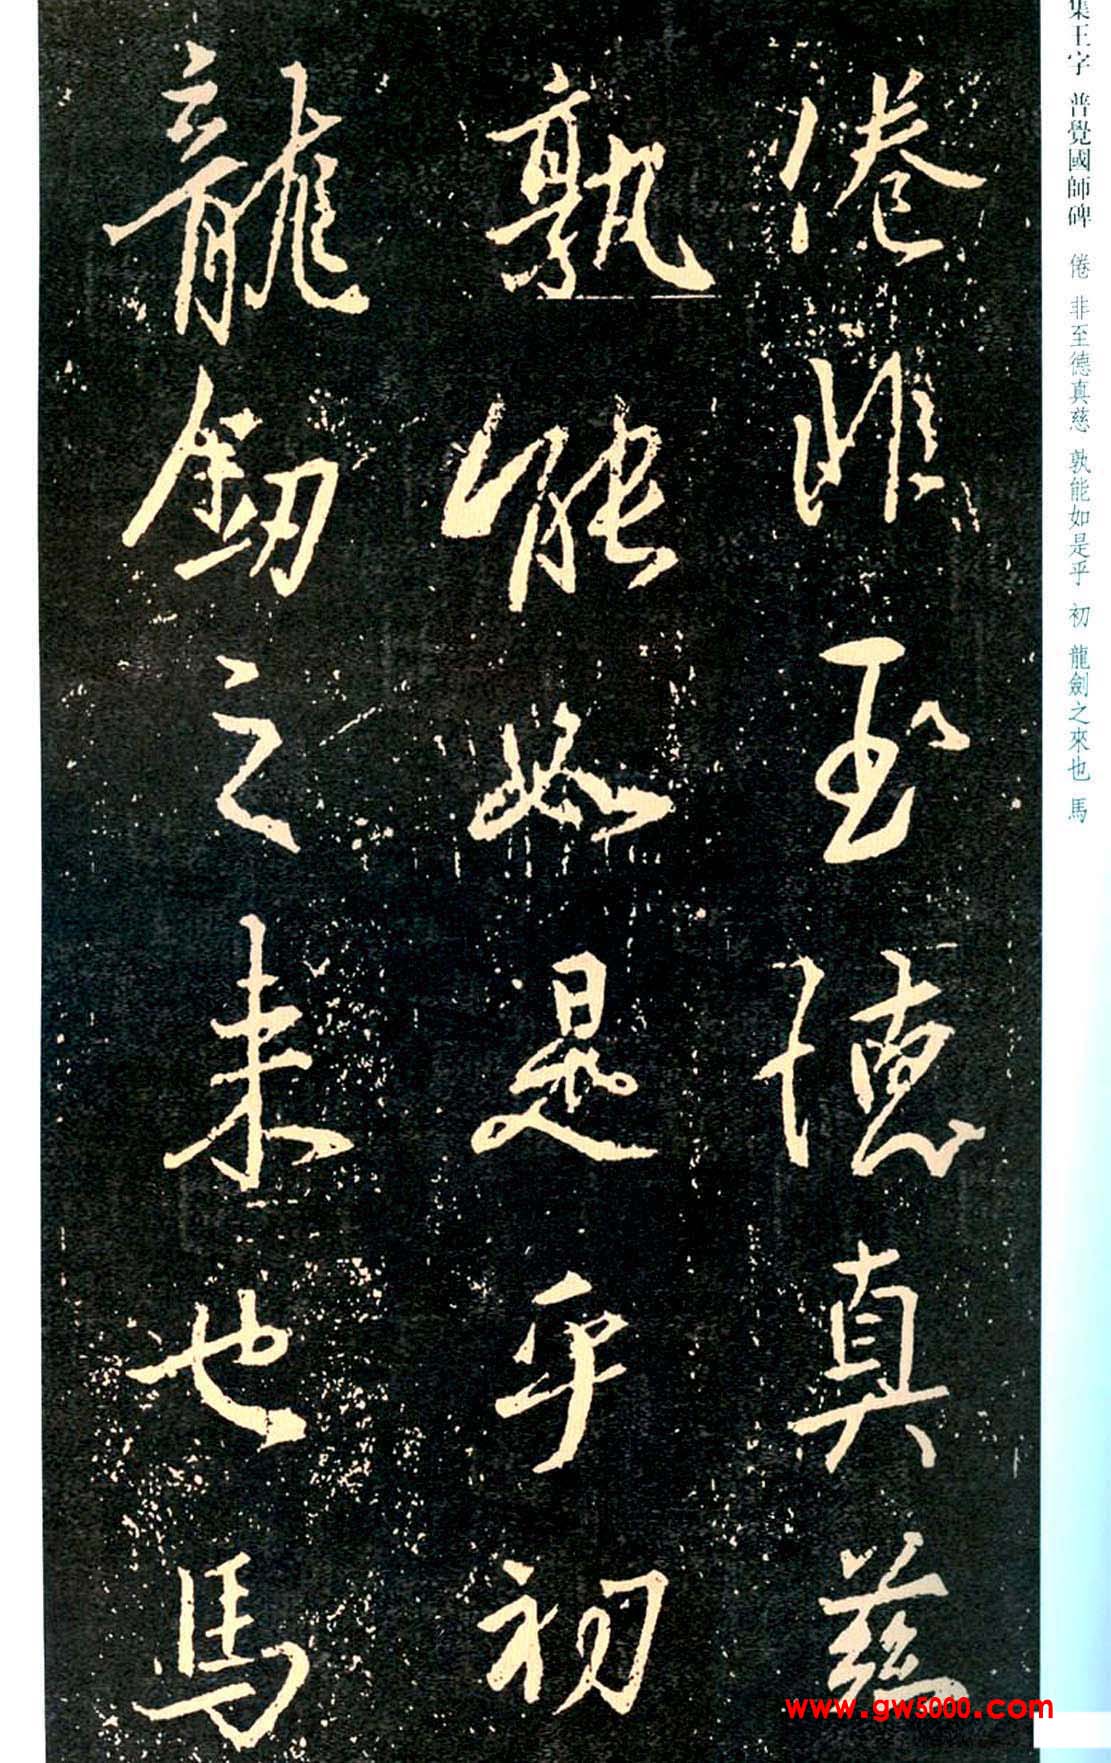 集王字 普覺國師碑 倦 非至德真慈 孰能如是乎 初 龍劍之來也 馬
倦非至德真慈
孰能如是乎初
龍釼之来也馬
www.gw5000.com